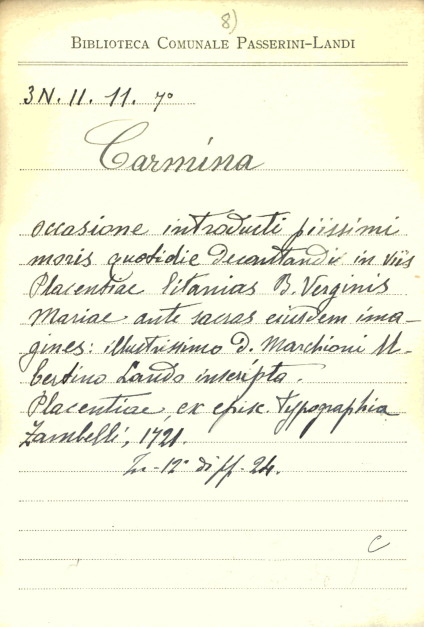 8)
BIBLIOTECA COMUNALE PASSERINI-LANDI
3N. II. 11. 7º
Carmina
occasione introducti piissimi
moris quotidie decantandi in viis
Placentiae litanias B. Verginis
Mariae ante sacras eiusdem ima-
gines: illustrissimo D. Marchioni U-
bertino Lando inscripta.
Placentiae, ex episc. typographia
Zambelli, 1721.
In-12º di ff. 24.
C